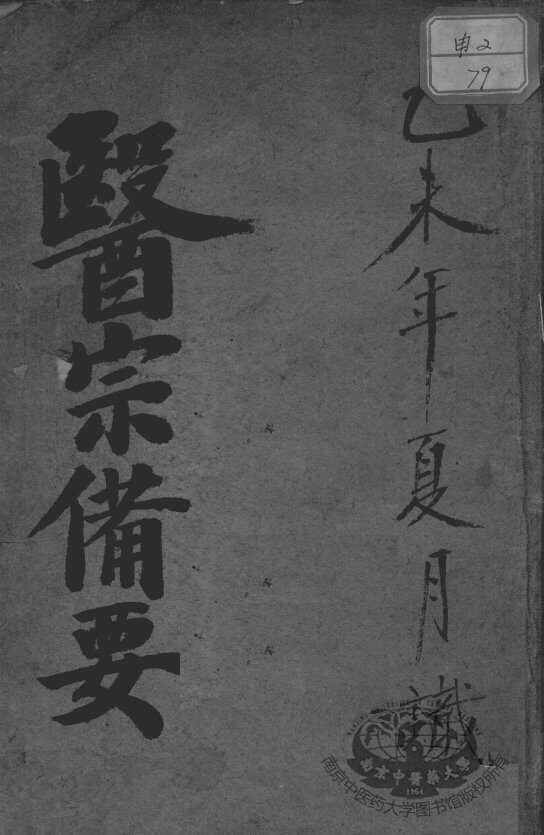 申2
79
乙未年夏月識
醫宗備要
南京中醫藥大學
1954
南京中医药大学图书馆版权所有